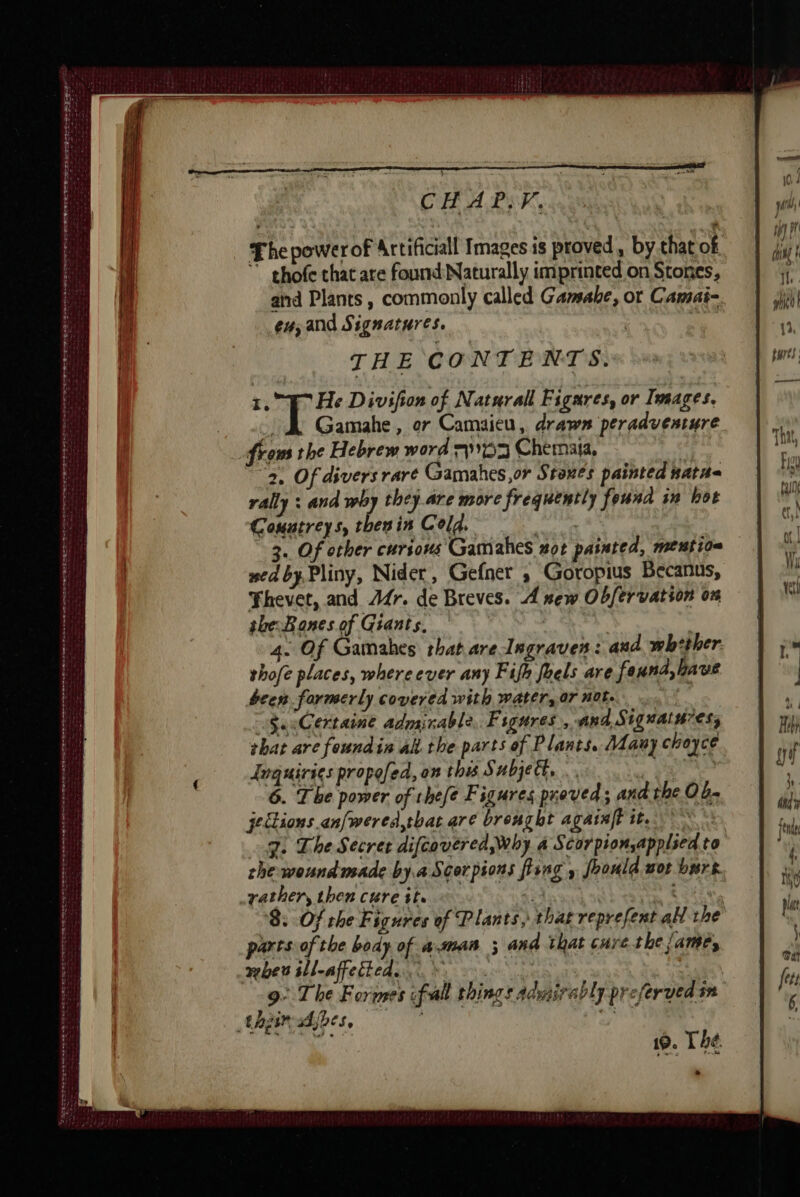 CHAP. V.
The power of Artificiall Images is proved, by that of
those that are found Naturally imprinted on Stones,
and Plants, commonly called Gamahe, or Camai-
eu, and Signatures.
THE CONTENTS.
1. THe Division of Naturall Figures, or Images.
Gamahe, or Camaieu, drawn peradventure
from the Hebrew word Chemaia.
2. Of divers rare Gamahes, or Stones painted natu-
rally: and why they are more frequently found in hot
Countreys, then in Cold.
3. Of other curious Gamahes not painted, mentio-
ned by Pliny, Nider, Gesner, Goropius Becanus,
Thevet, and Mr. de Breves. A new Observation on
the Bones of Giants.
4. Of Gamahes that are Ingraven: and whether
those places, where ever any Fish shels are found, have
been formerly covered with water, or not.
5. Certaine admirable Figures, and Signatures,
that are found in all the parts of Plants. Many choyce
Inquiries proposed, on this Subject.
6. The power of these Figures proved; and the Ob-
jections answered, that are brought against it.
7. The Secret discovered, Why a Scorpion, applied to
the wound made by a Scorpions sting, should not hurt
rather, then cure it.
8. Of the Figures of Plants, that represent all the
parts of the body of a man; and that cure the same,
when ill-affected.
9. The Formes of all things admirably preserved in
their Ashes.
10. The